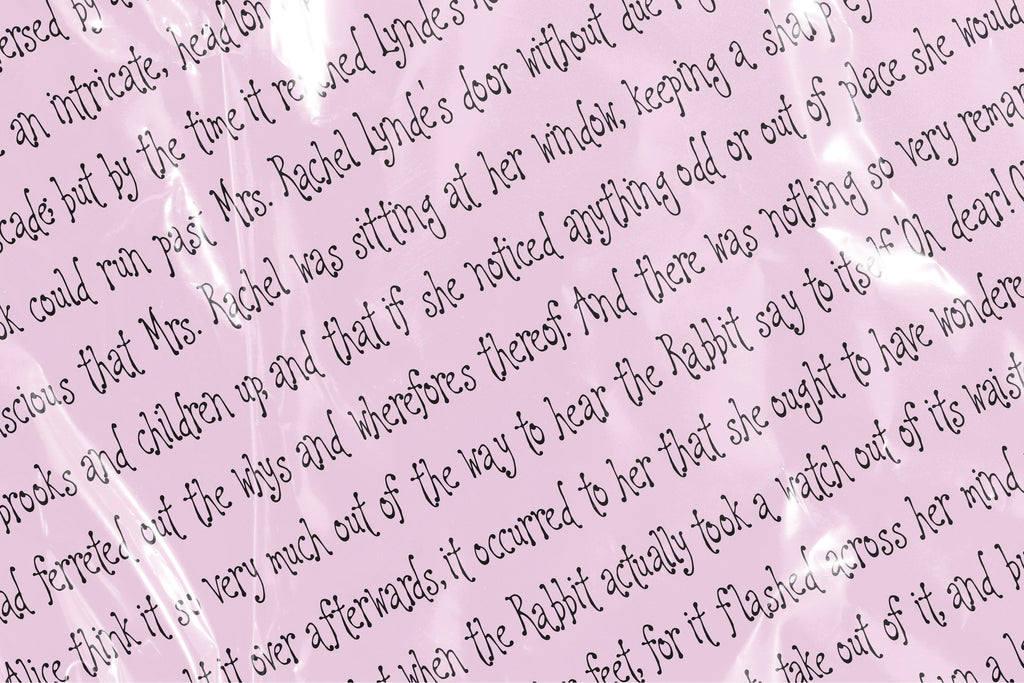 ersed by a
an intricate, headlon
cade; but by the time it reached Lynde's h
ok could run past Mrs. Rachel Lynde's door without due
nscious that Mrs. Rachel was sitting at her window, keeping a sharp ey
brooks and children up, and that if she noticed anything odd or out of place she would
ad ferreted out the whys and wherefores thereof. And there was nothing so very remar
Alice think it so very much out of the way to hear the Rabbit say to itself 'Oh dear! O
t it over afterwards, it occurred to her that she ought to have wondere
t when the Rabbit actually took a watch out of its waist
r feet, for it flashed across her mind
take out of it, and bu